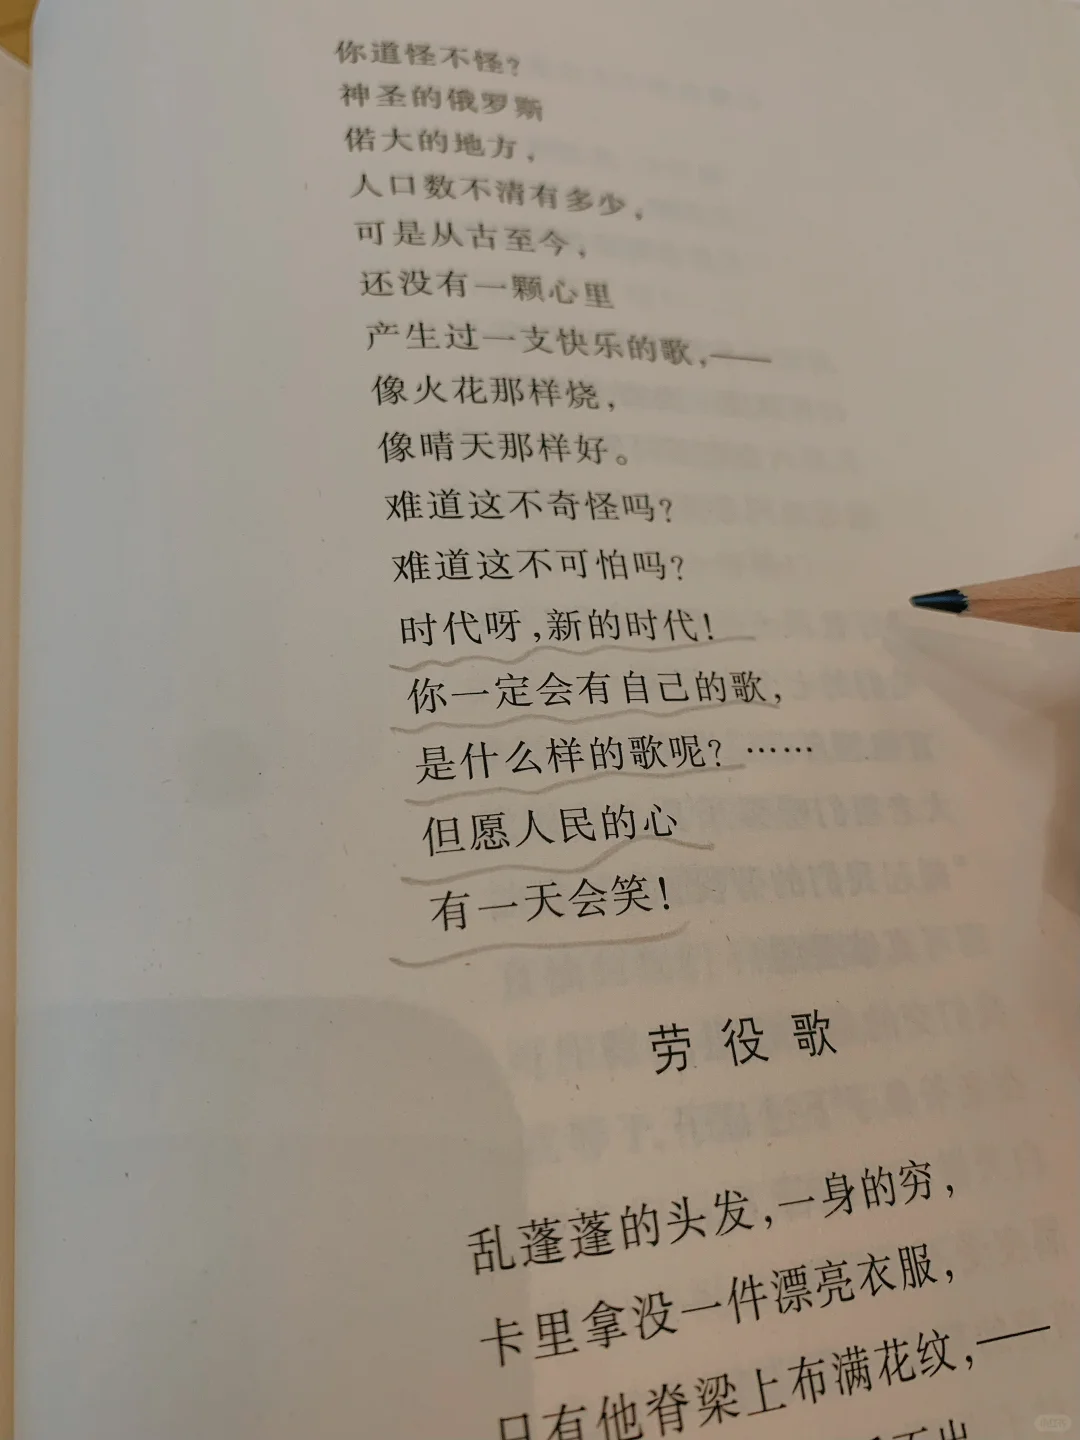 你道怪不怪?
神圣的俄罗斯
偌大的地方,
人口数不清有多少,
可是从古至今,
还没有一颗心里
产生过一支快乐的歌,——
像火花那样烧,
像晴天那样好。
难道这不奇怪吗?
难道这不可怕吗?
时代呀,新的时代!
你一定会有自己的歌,
是什么样的歌呢?……
但愿人民的心
有一天会笑!
劳役歌
乱蓬蓬的头发,一身的穷,
卡里拿没一件漂亮衣服,
只有他脊梁上布满花纹,——